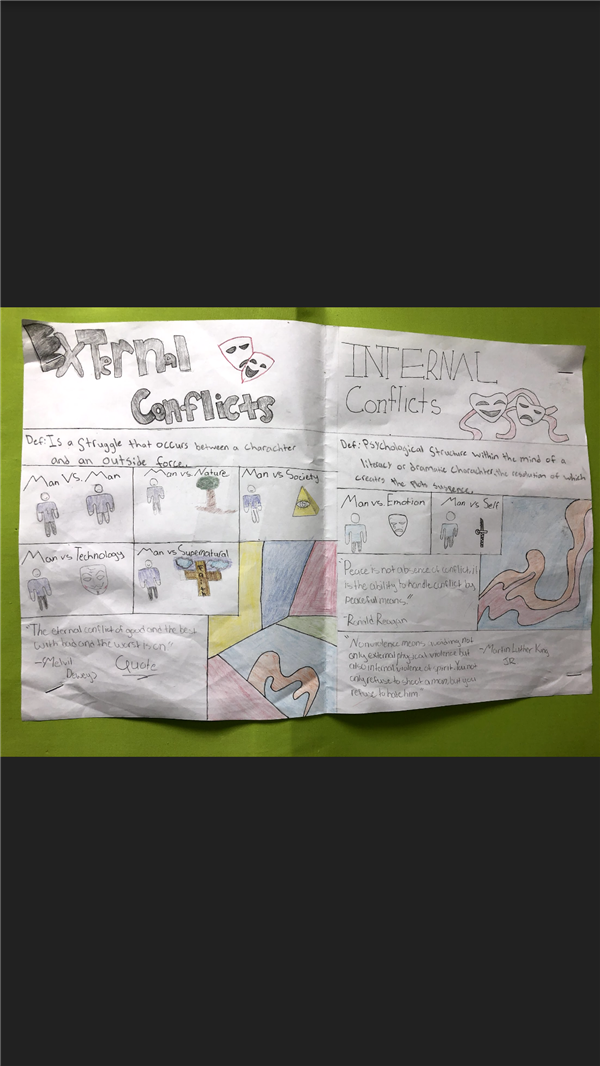 External
Conflicts
Def: Is a Struggle that occurs between a charachter
and an outside force.
Man Vs. Man
Man vs. Nature
Man vs Society
Man vs Technology
Man vs Supernatural
FAITH
"The eternal conflict of good and the best
with bad and the worst is on"
-Melvil
Dewey
Quote
INTERNAL
Conflicts
Def: Psychological Structure within the mind of a
literact or dramatic charachter, the resolution of which
creates the plots suspence.
Man vs. Emotion
Man vs Self
"Peace is not absence of conflict, it
is the ability to handle conflict by
peaceful means."
-Ronald Reagan
"Nonviolence means avoiding not
only external physical violence but
also internal violence of spirit. You not
only refuse to shoot a man, but you
refuse to hate him."
-Martin Luther King
JR